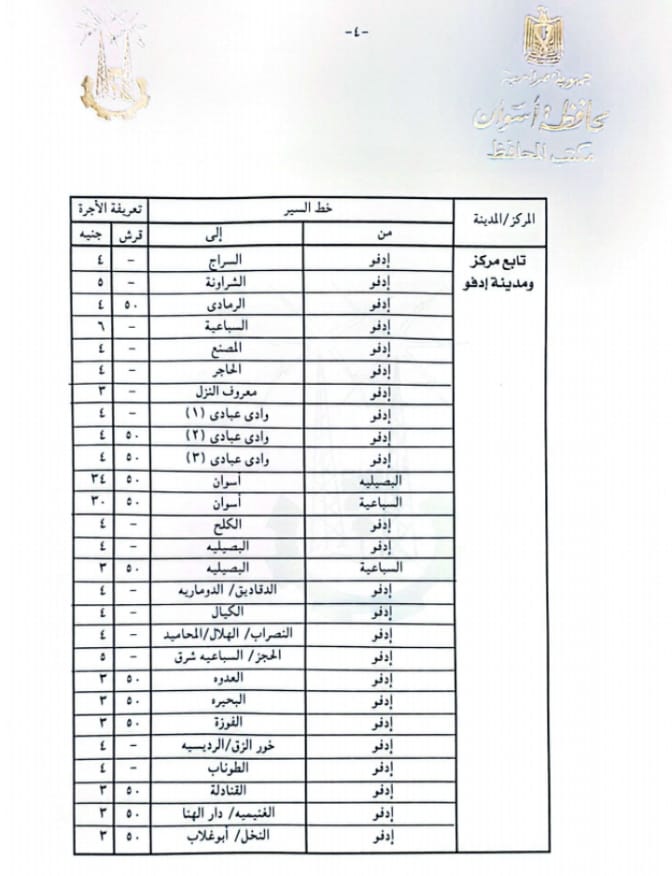 -٤-
جمهورية مصر العربية
محافظة أسوان
مكتب المحافظ
المركز/المدينة خط السير تعريفة الأجرة
من إلى قرش جنيه
تابع مركز ومدينة إدفو
إدفو السراج - ٤
إدفو الشراونة - ٥
إدفو الرمادى ٥٠ ٤
إدفو السباعية - ٦
إدفو المصنع - ٤
إدفو الحاجر - ٤
إدفو معروف النزل - ٣
إدفو وادى عبادى (١) - ٤
إدفو وادى عبادى (٢) ٥٠ ٤
إدفو وادى عبادى (٣) ٥٠ ٤
البصيليه أسوان ٥٠ ٣٤
السباعية أسوان ٥٠ ٣٠
إدفو الكلح - ٤
إدفو البصيليه - ٤
السباعية البصيليه ٥٠ ٣
إدفو الدقاديق/ الدوماريه - ٤
إدفو الكيال - ٤
إدفو النصراب/ الهلال/المحاميد - ٤
إدفو الحجز/ السباعيه شرق - ٥
إدفو العدوه ٥٠ ٣
إدفو البحيره ٥٠ ٣
إدفو الفوزة ٥٠ ٣
إدفو خور الزق/الرديسيه - ٤
إدفو الطوناب - ٤
إدفو القنادلة ٥٠ ٣
إدفو الغنيميه/ دار الهنا ٥٠ ٣
إدفو النخل/ أبوغلاب ٥٠ ٣